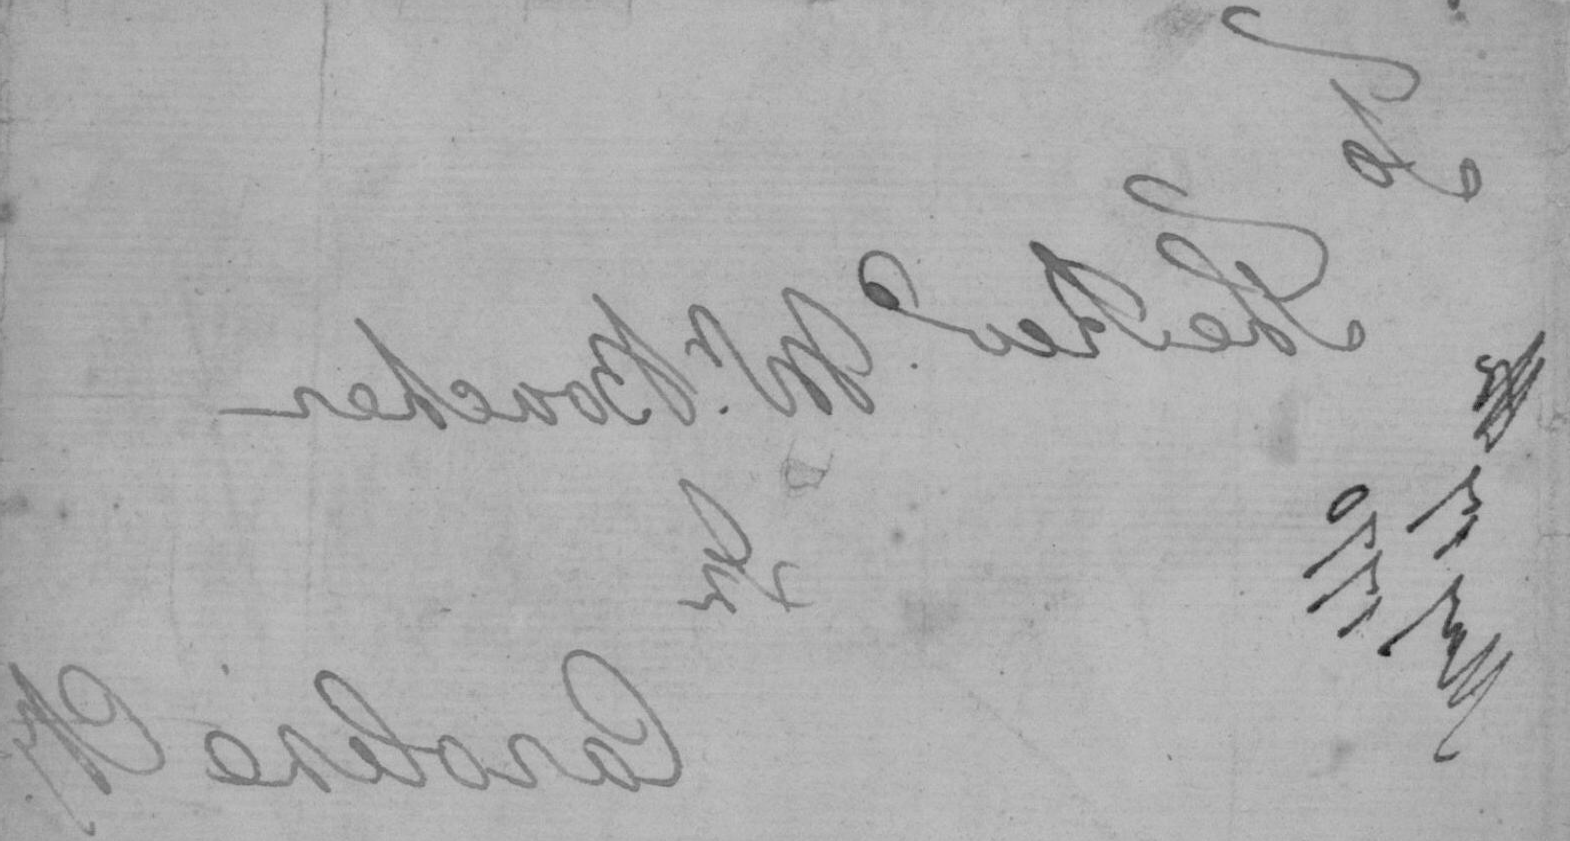 To
The Revd. Mr. Boucher
In
Caroline Cty
May 13
1770